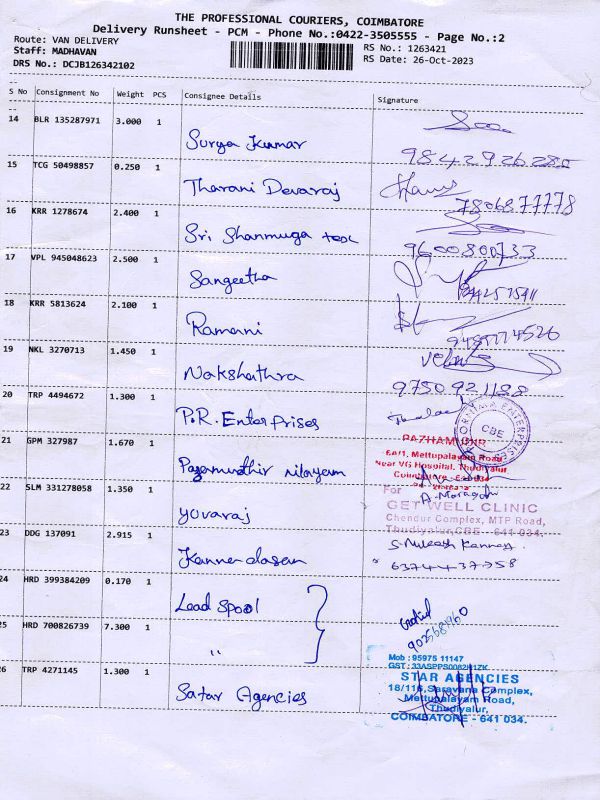 THE PROFESSIONAL COURIERS, COIMBATORE
Delivery Runsheet - PCM - Phone No.:0422-3505555 - Page No.:2
Route: VAN DELIVERY
RS No.: 1263421
Staff: MADHAVAN
RS Date: 26-Oct-2023
DRS No.: DCJB126342102
S No Consignment No Weight PCS Consignee Details Signature
14 BLR 135287971 3.000 1
Surya Kumar
9842926280
15 TCG 50498857 0.250 1
Tharani Devaraj
7806877778
16 KRR 1278674 2.400 1
Sri Shanmuga tex
9600800733
17 VPL 945048623 2.500 1
Sangeetha
18 KRR 5813624 2.100 1
Ramani
19 NKL 3270713 1.450 1
Nakshathra
9750921188
20 TRP 4494672 1.300 1
P.R. Enterprises
CBE
21 GPM 327987 1.670 1
Mettupalayam Road
Near VG Hospital, Thudiyalur
Pazamudhir nilayam
22 SLM 331278058 1.350 1
For
GET WELL CLINIC
Chendur Complex, MTP Road,
Thudiyalur, CBE - 641 034.
Yuvaraj
23 DDG 137091 2.915 1
Kannadasan
6374437758
24 HRD 399384209 0.170 1
Lead Spool
25 HRD 700826739 7.300 1
"
Mob : 95975 11147
26 TRP 4271145 1.300 1
STAR AGENCIES
18/116, Saravana Complex,
Mettupalayam Road,
Thudiyalur,
COIMBATORE - 641 034.
Satar Agencies